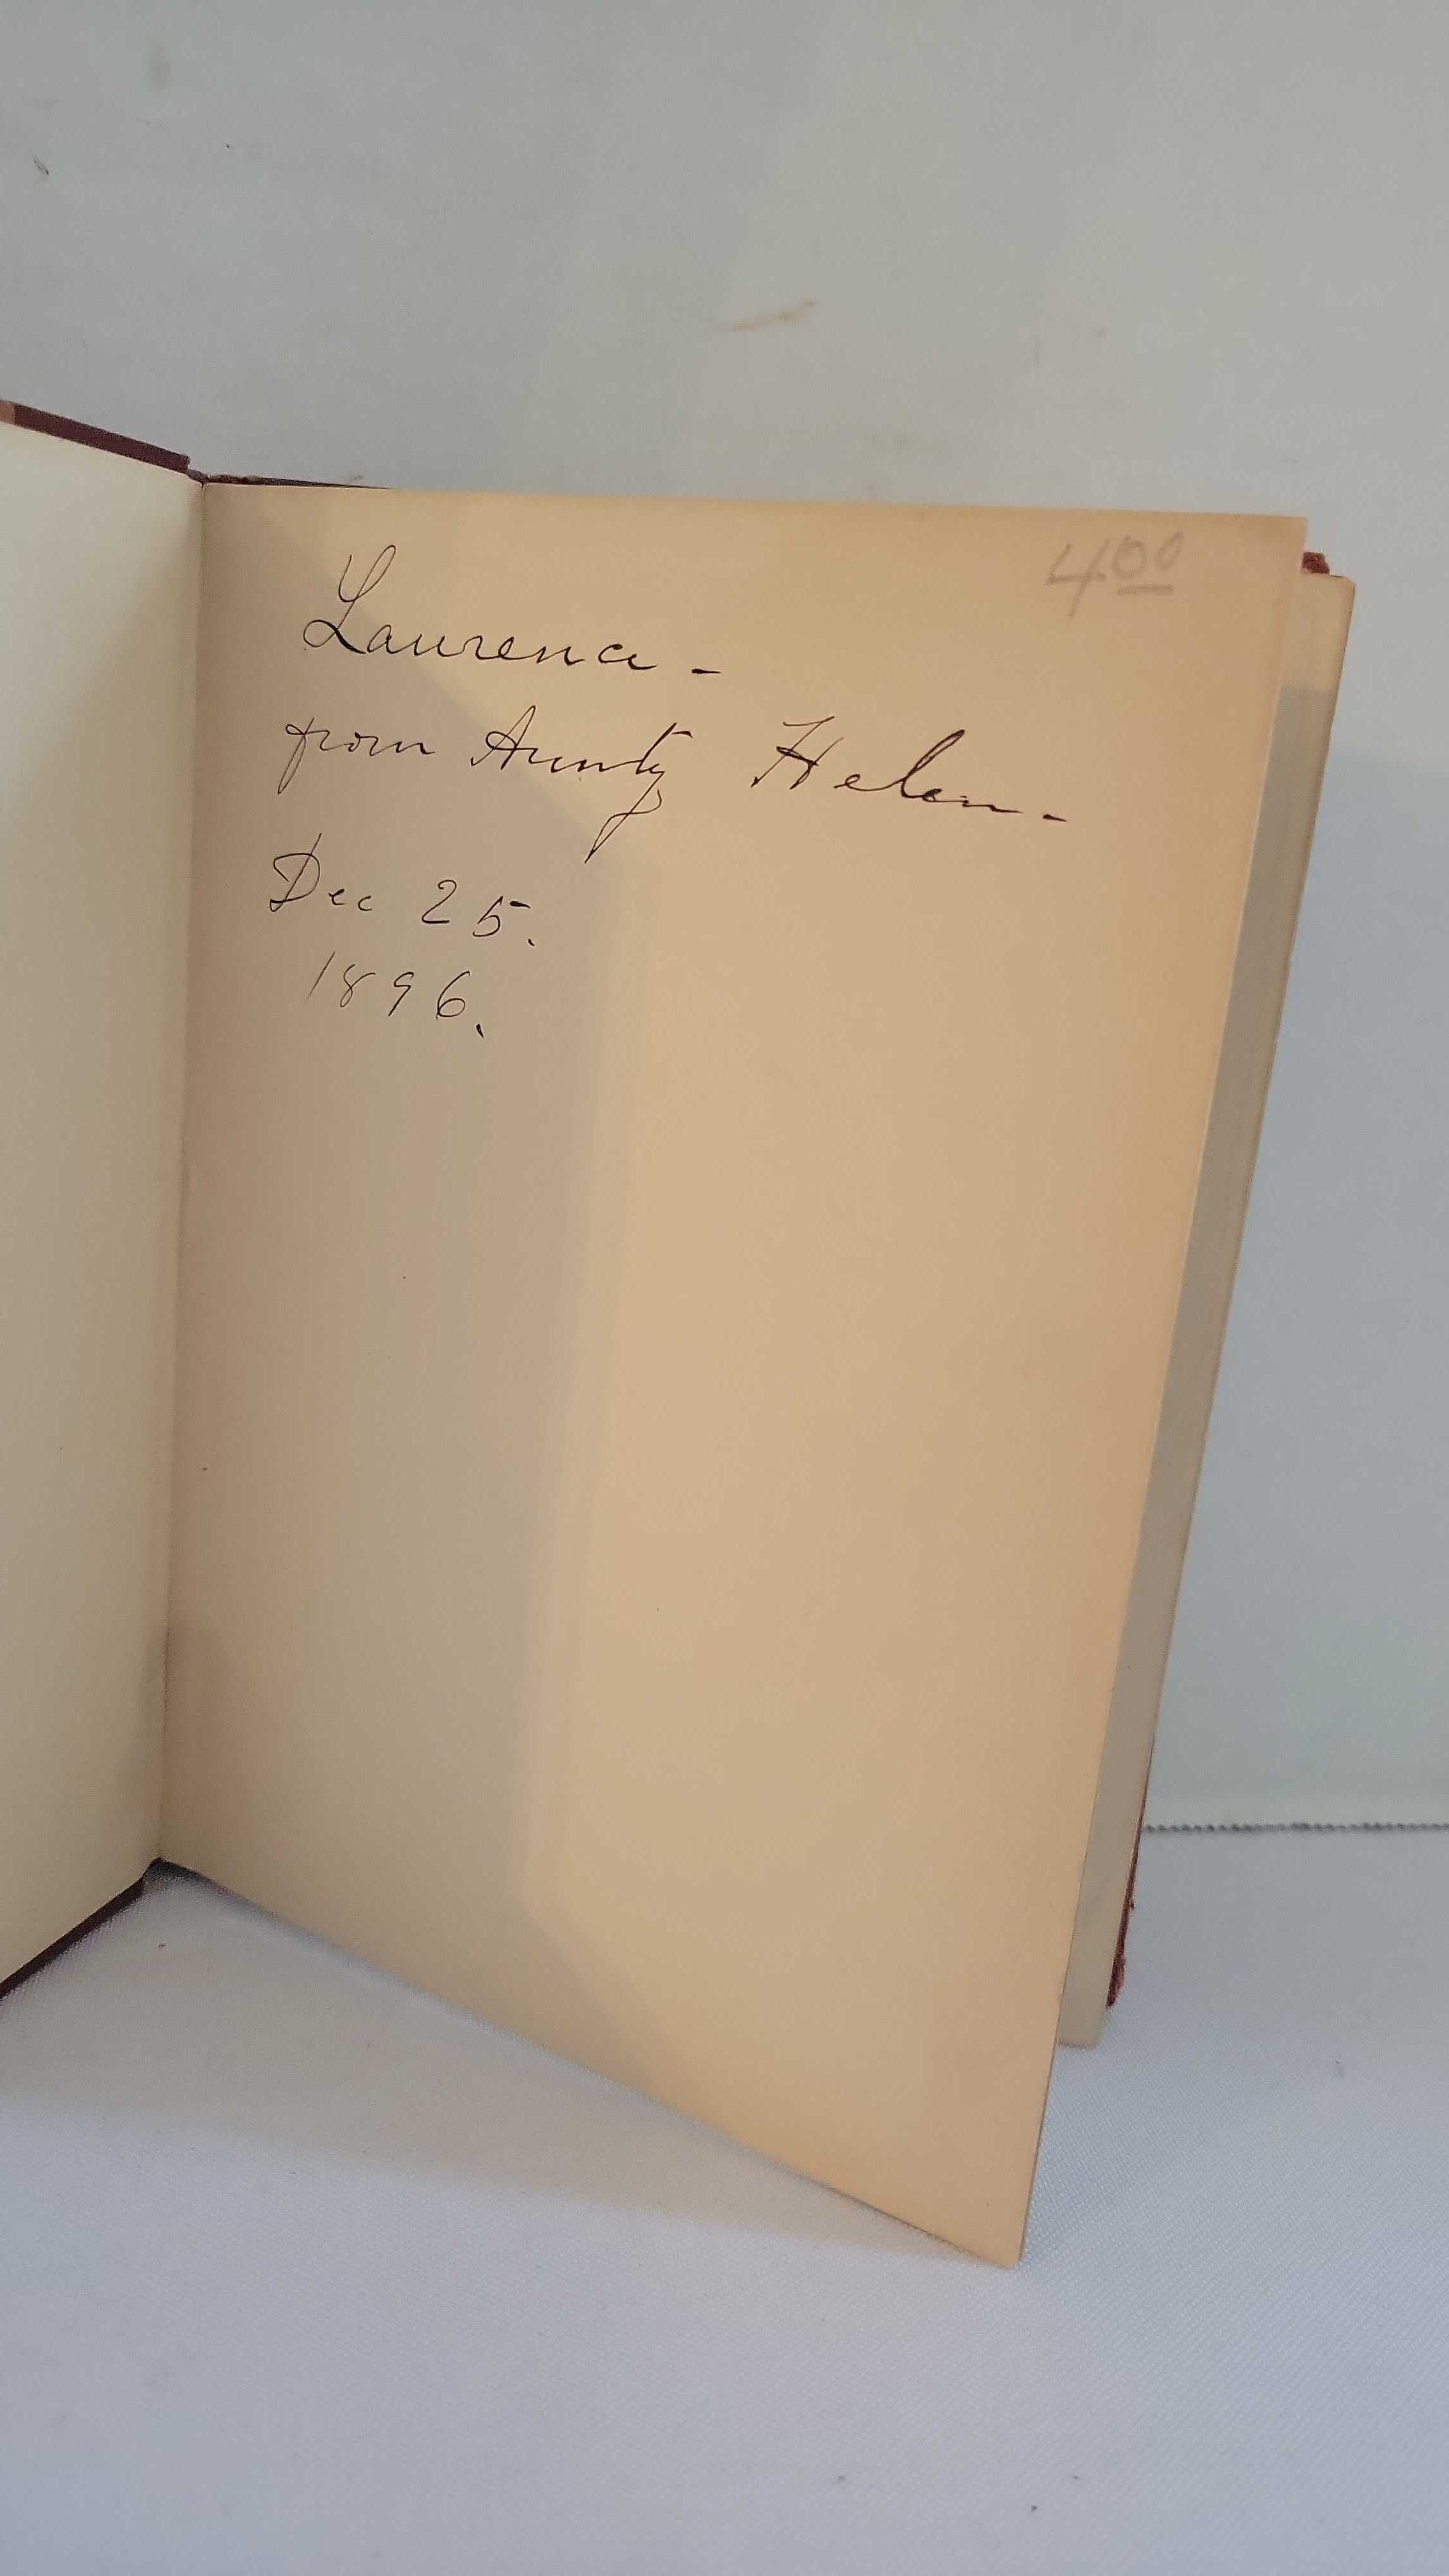 4.00
Laurence -
from Aunty Helen -
Dec 25.
1896.